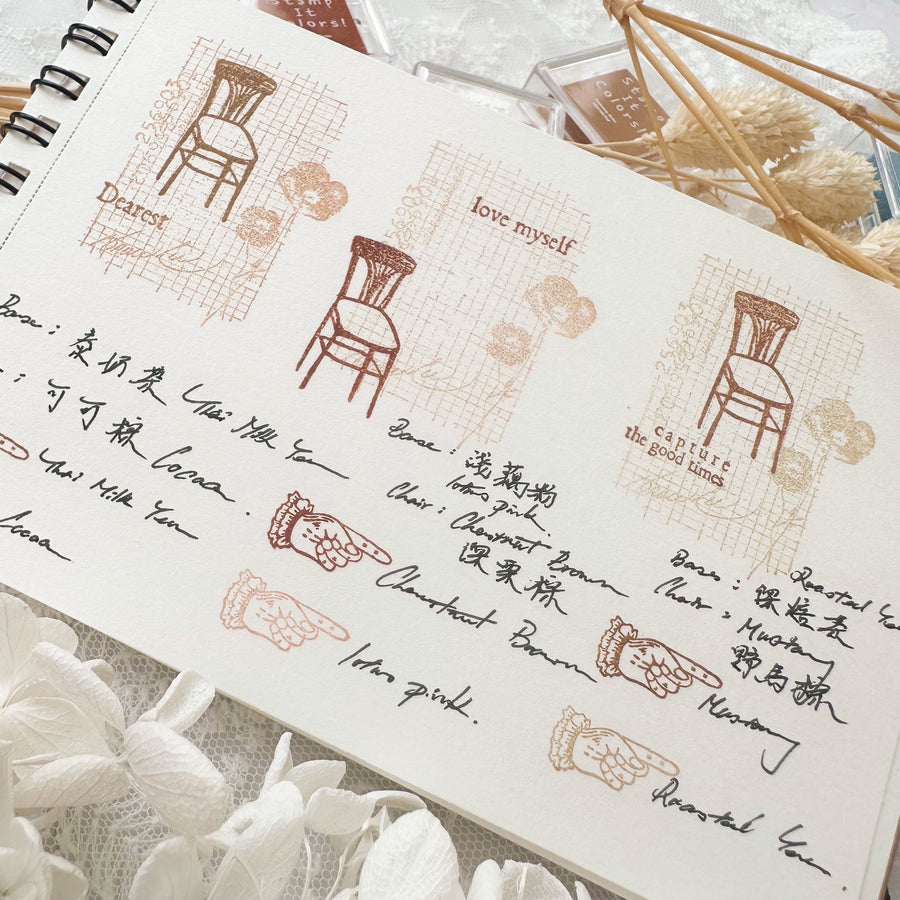 Stamp
It
Colors!
Stamp
It
Colors!
Dearest
love myself
capture
the good times
Base:
Thai Milk Tea
可可棕 Cocoa
Thai Milk Tea
Cocoa
Base: 浅藕粉
lotus pink
Chair: Chestnut Brown
深栗棕
Chestnut Brown
lotus pink.
Base: Roasted Tea
深焙茶
Chair: Mustang
野馬棕
Mustang
Roasted Tea.